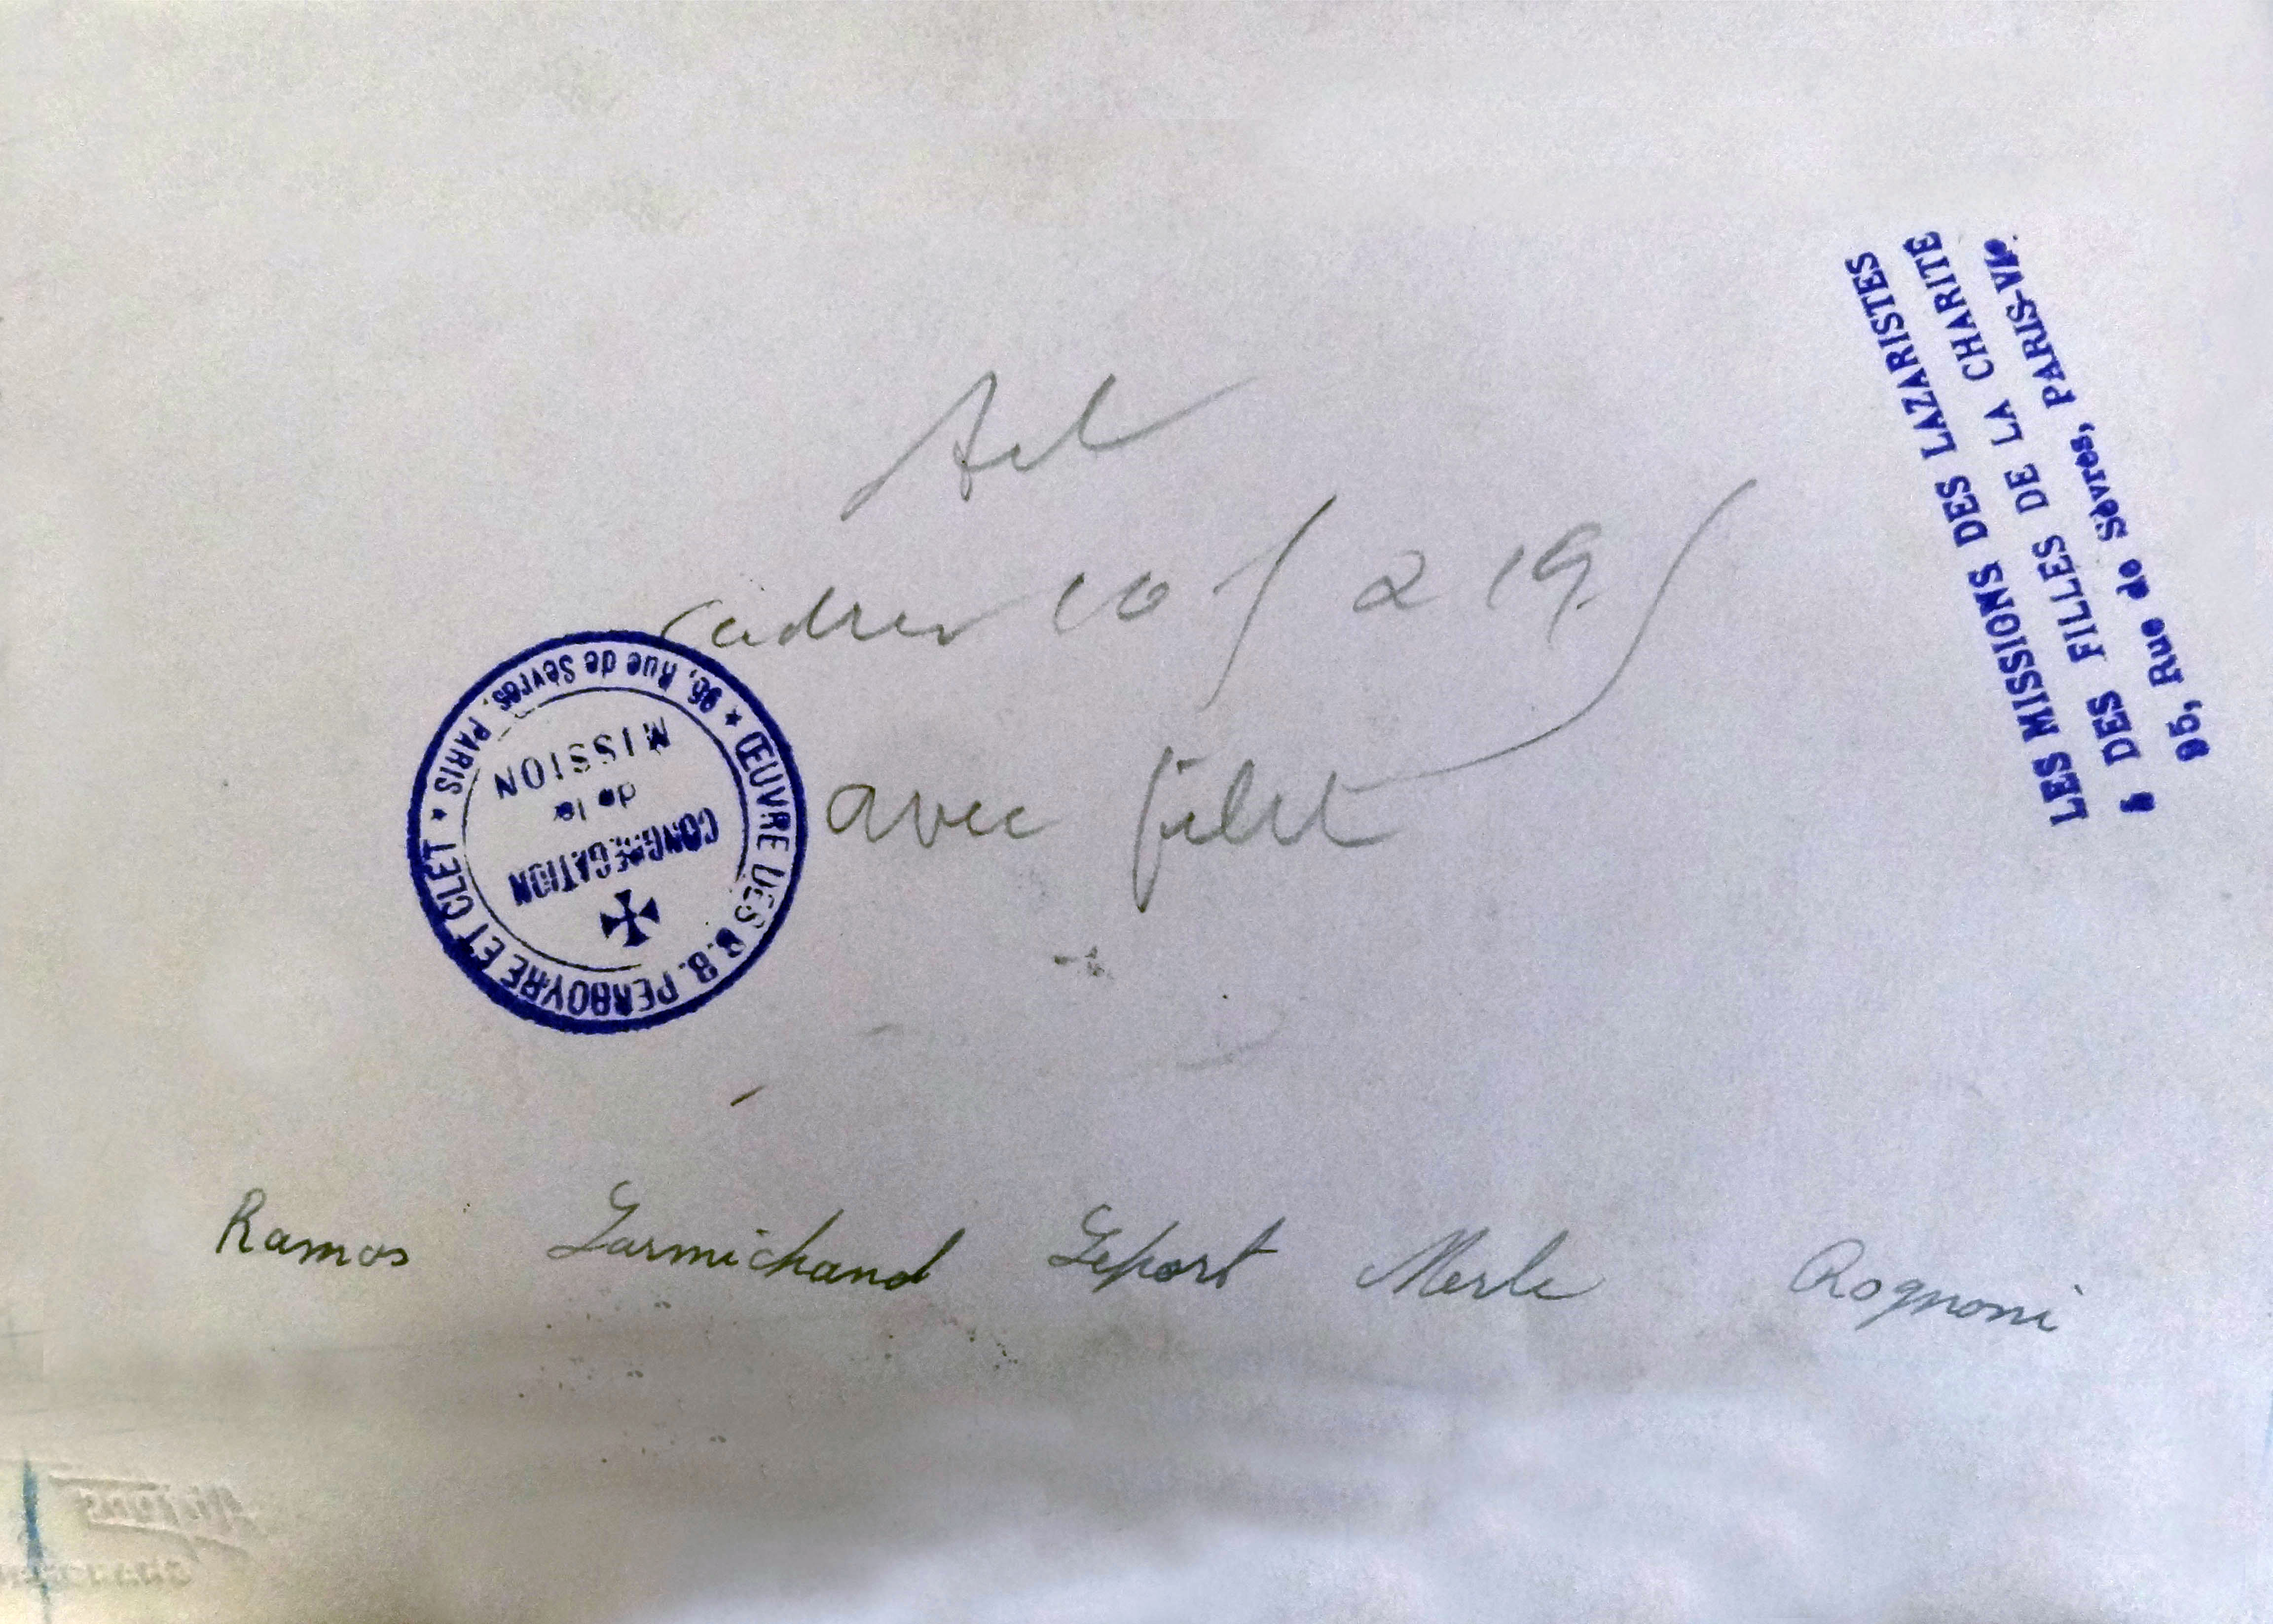 cadrer 10 5 a 19 5
avec filet
ŒUVRE DES B.B. PERBOYRE ET CLET ★ 95, Rue de Sèvres, PARIS ★
CONGREGATION
de la
MISSION
LES MISSIONS DES LAZARISTES
& DES FILLES DE LA CHARITE
95, Rue de Sèvres, PARIS-VIe
Ramos Larmichand Leport Merle Rognoni